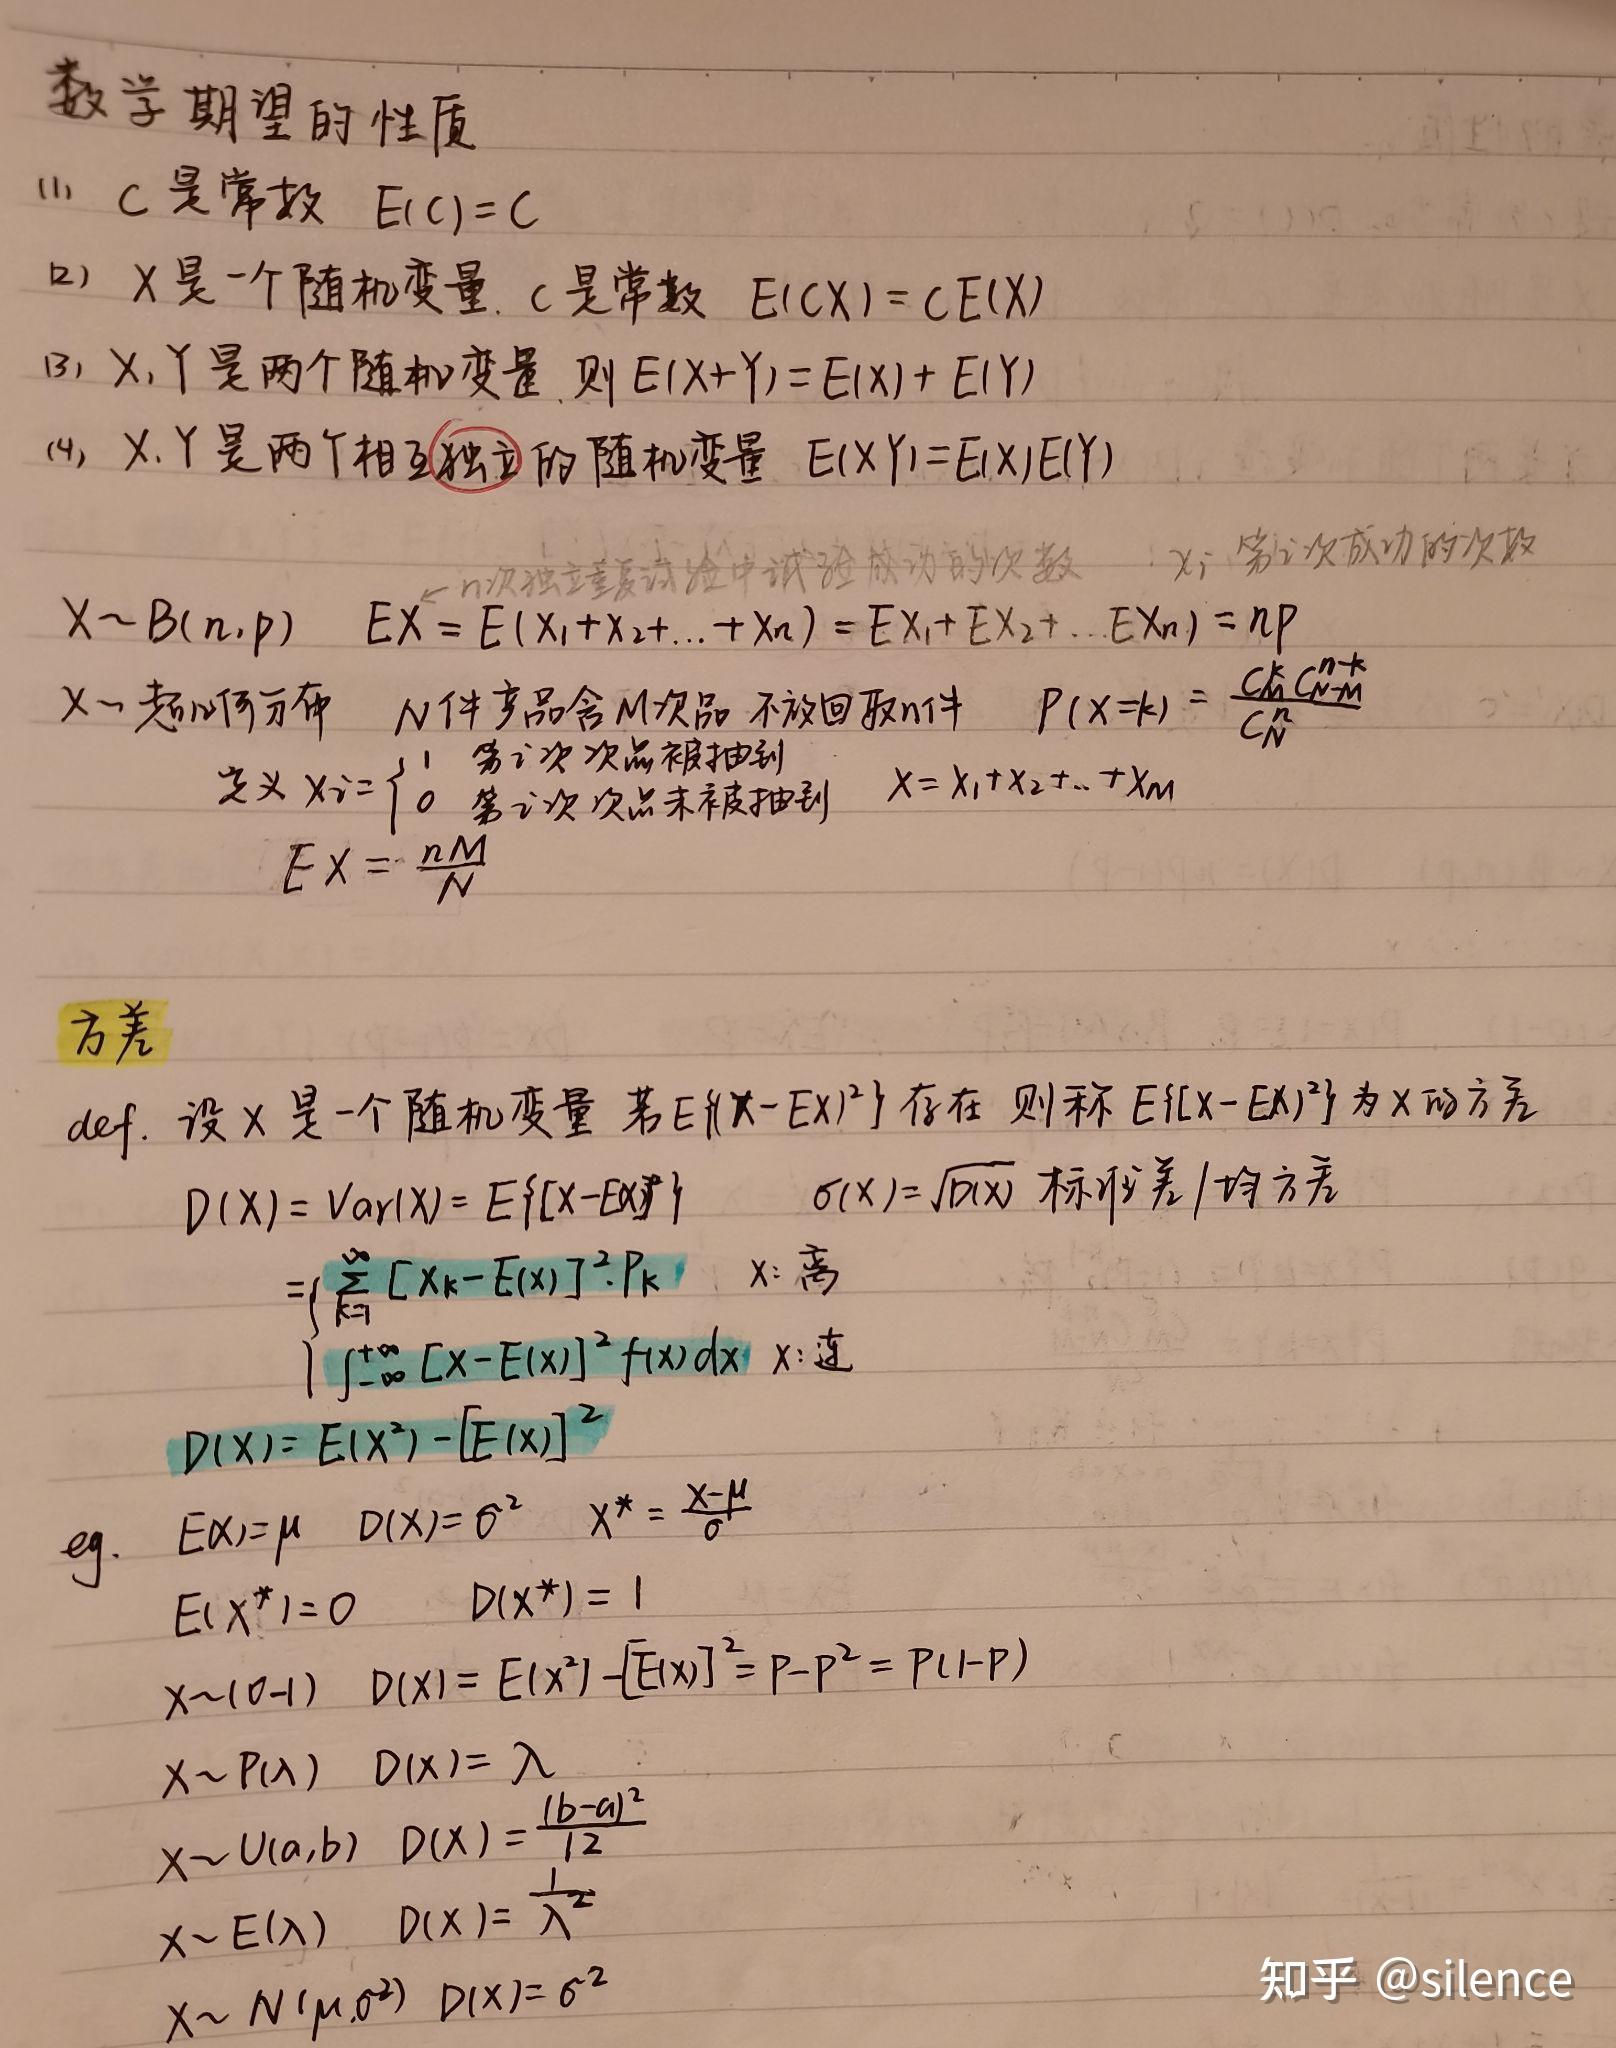 数学期望的性质
(1) C是常数 E(C)=C
(2) X是一个随机变量. C是常数 E(CX)=CE(X)
(3) X,Y是两个随机变量,则E(X+Y)=E(X)+E(Y)
(4) X,Y是两个相互独立的随机变量 E(XY)=E(X)E(Y)
←n次独立重复试验中试验成功的次数 Xi 第i次成功的次数
X~B(n,p) EX=E(X₁+X₂+...+Xn)=EX₁+EX₂+...EXn)=np
X~超几何分布 N件产品含M次品 不放回取n件 P(X=k)=\frac{C_M^k C_{N-M}^{n-k}}{C_N^n}
定义 Xi={1 第i次次品被抽到
0 第i次次品未被抽到 X=X₁+X₂+..+X_M
EX=\frac{nM}{N}
方差
def. 设X是一个随机变量 若E{(X-EX)²}存在 则称E{[X-EX)²}为X的方差
D(X)=Var(X)=E{[X-EX]²} σ(X)=√D(X) 标准差/均方差
={\sum_{k=1}^{∞}[X_k-E(X)]²·P_k X:离
∫_{-∞}^{+∞}[X-E(X)]²f(x)dx X:连
D(X)=E(X²)-[E(X)]²
eg. E(X)=μ D(X)=σ² X*=\frac{X-μ}{σ}
E(X*)=0 D(X*)=1
X~(0-1) D(X)=E(X²)-[E(X)]²=P-P²=P(1-P)
X~P(λ) D(X)=λ
X~U(a,b) D(X)=\frac{(b-a)²}{12}
X~E(λ) D(X)=\frac{1}{λ²}
X~N(μ,σ²) D(X)=σ²
知乎 @silence